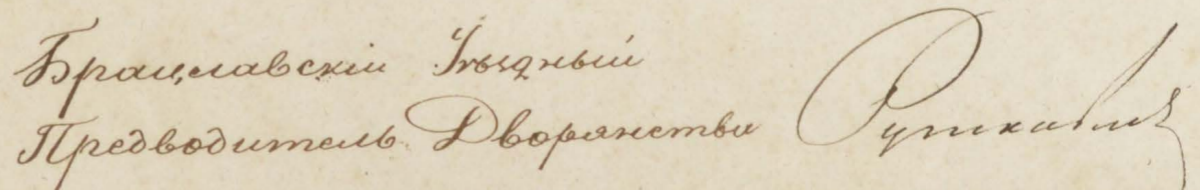 Брацлавскій Уѣздный
Предводитель Дворянства